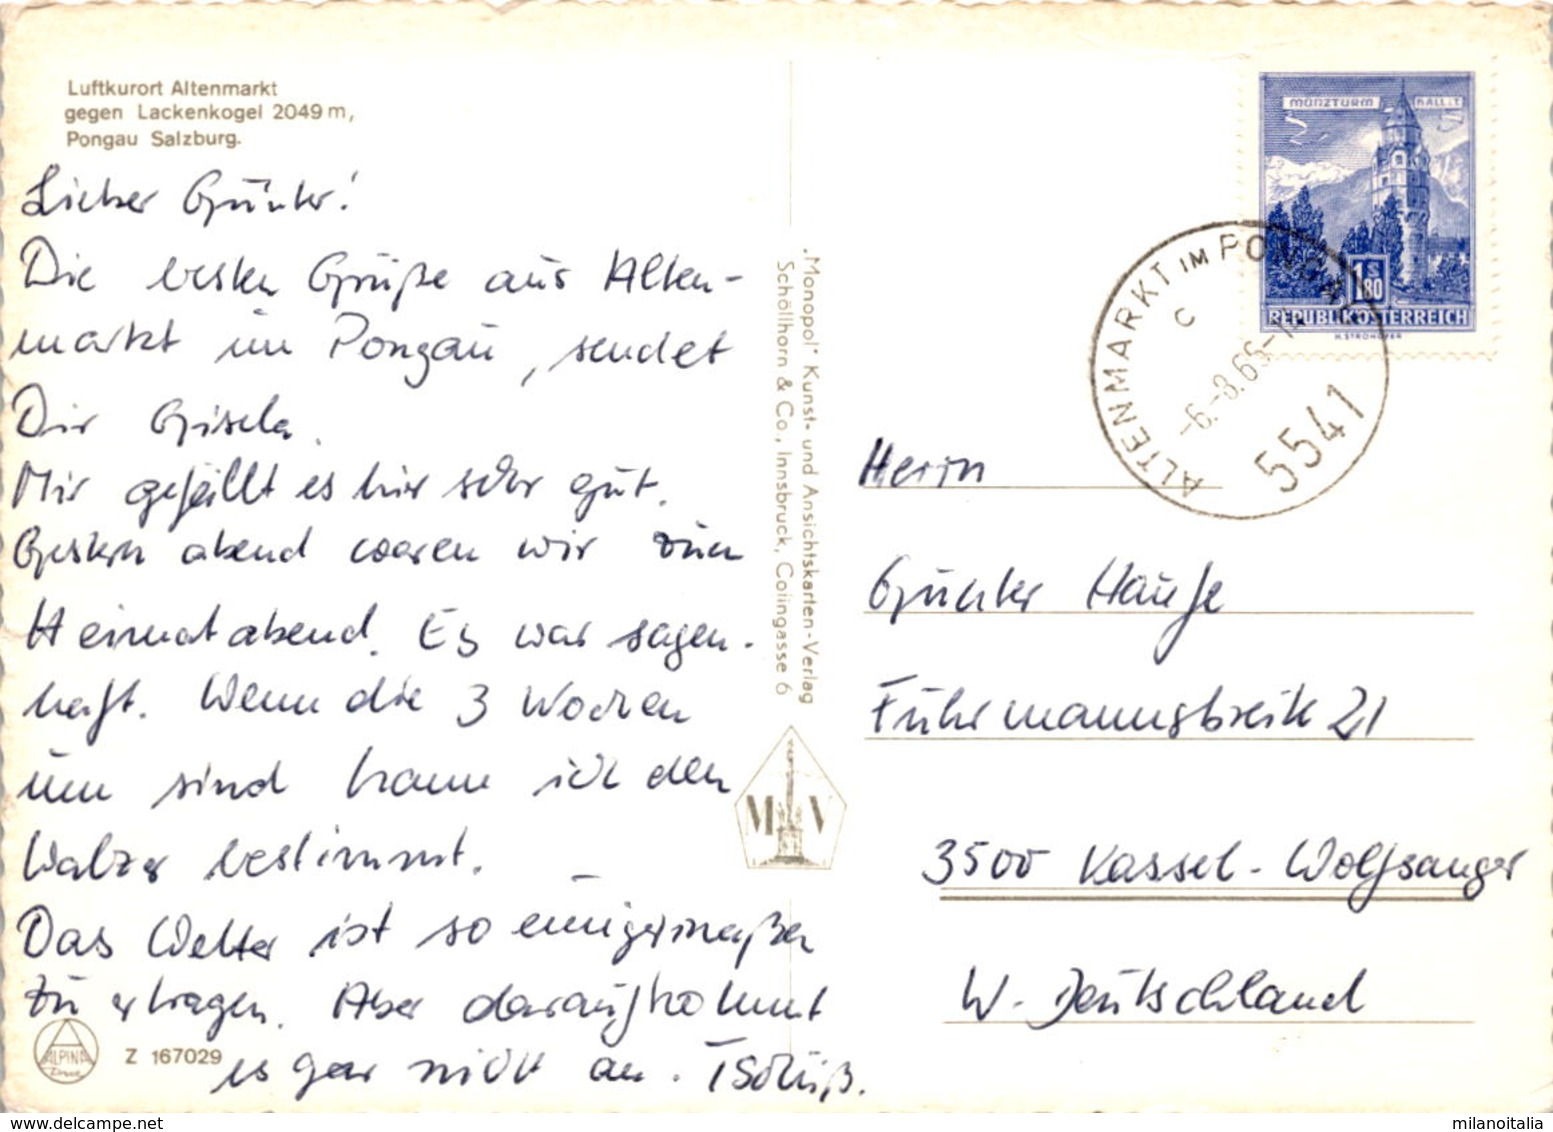 Luftkurort Altenmarkt
gegen Lackenkogel 2049 m,
Pongau Salzburg.
Lieber Günter!
Die besten Grüße aus Alten-
markt im Pongau, sendet
Dir Gisela.
Mir gefällt es hier sehr gut.
Gestern abend waren wir zum
Heimatabend. Es war sagen-
haft. Wenn die 3 Wochen
um sind kann ich den
Walzer bestimmt.
Das Wetter ist so einigermaßen
zu ertragen. Aber darauf kommt
es gar nicht an. Tschüß.
ALPINA
Druck
Z 167029
„Monopol" Kunst- und Ansichtskarten-Verlag
Schöllhorn & Co., Innsbruck, Colingasse 6
M V
MÜNZTURM HALL i.T.
S
1.80
REPUBLIK ÖSTERREICH
H. STROHOFER
ALTENMARKT IM PONGAU
c
-6.-8.65-
5541
Herrn
Günter Haufe
Fuhrmannsbreite 21
3500 Kassel-Wolfsanger
W.-Deutschland
milanoitalia